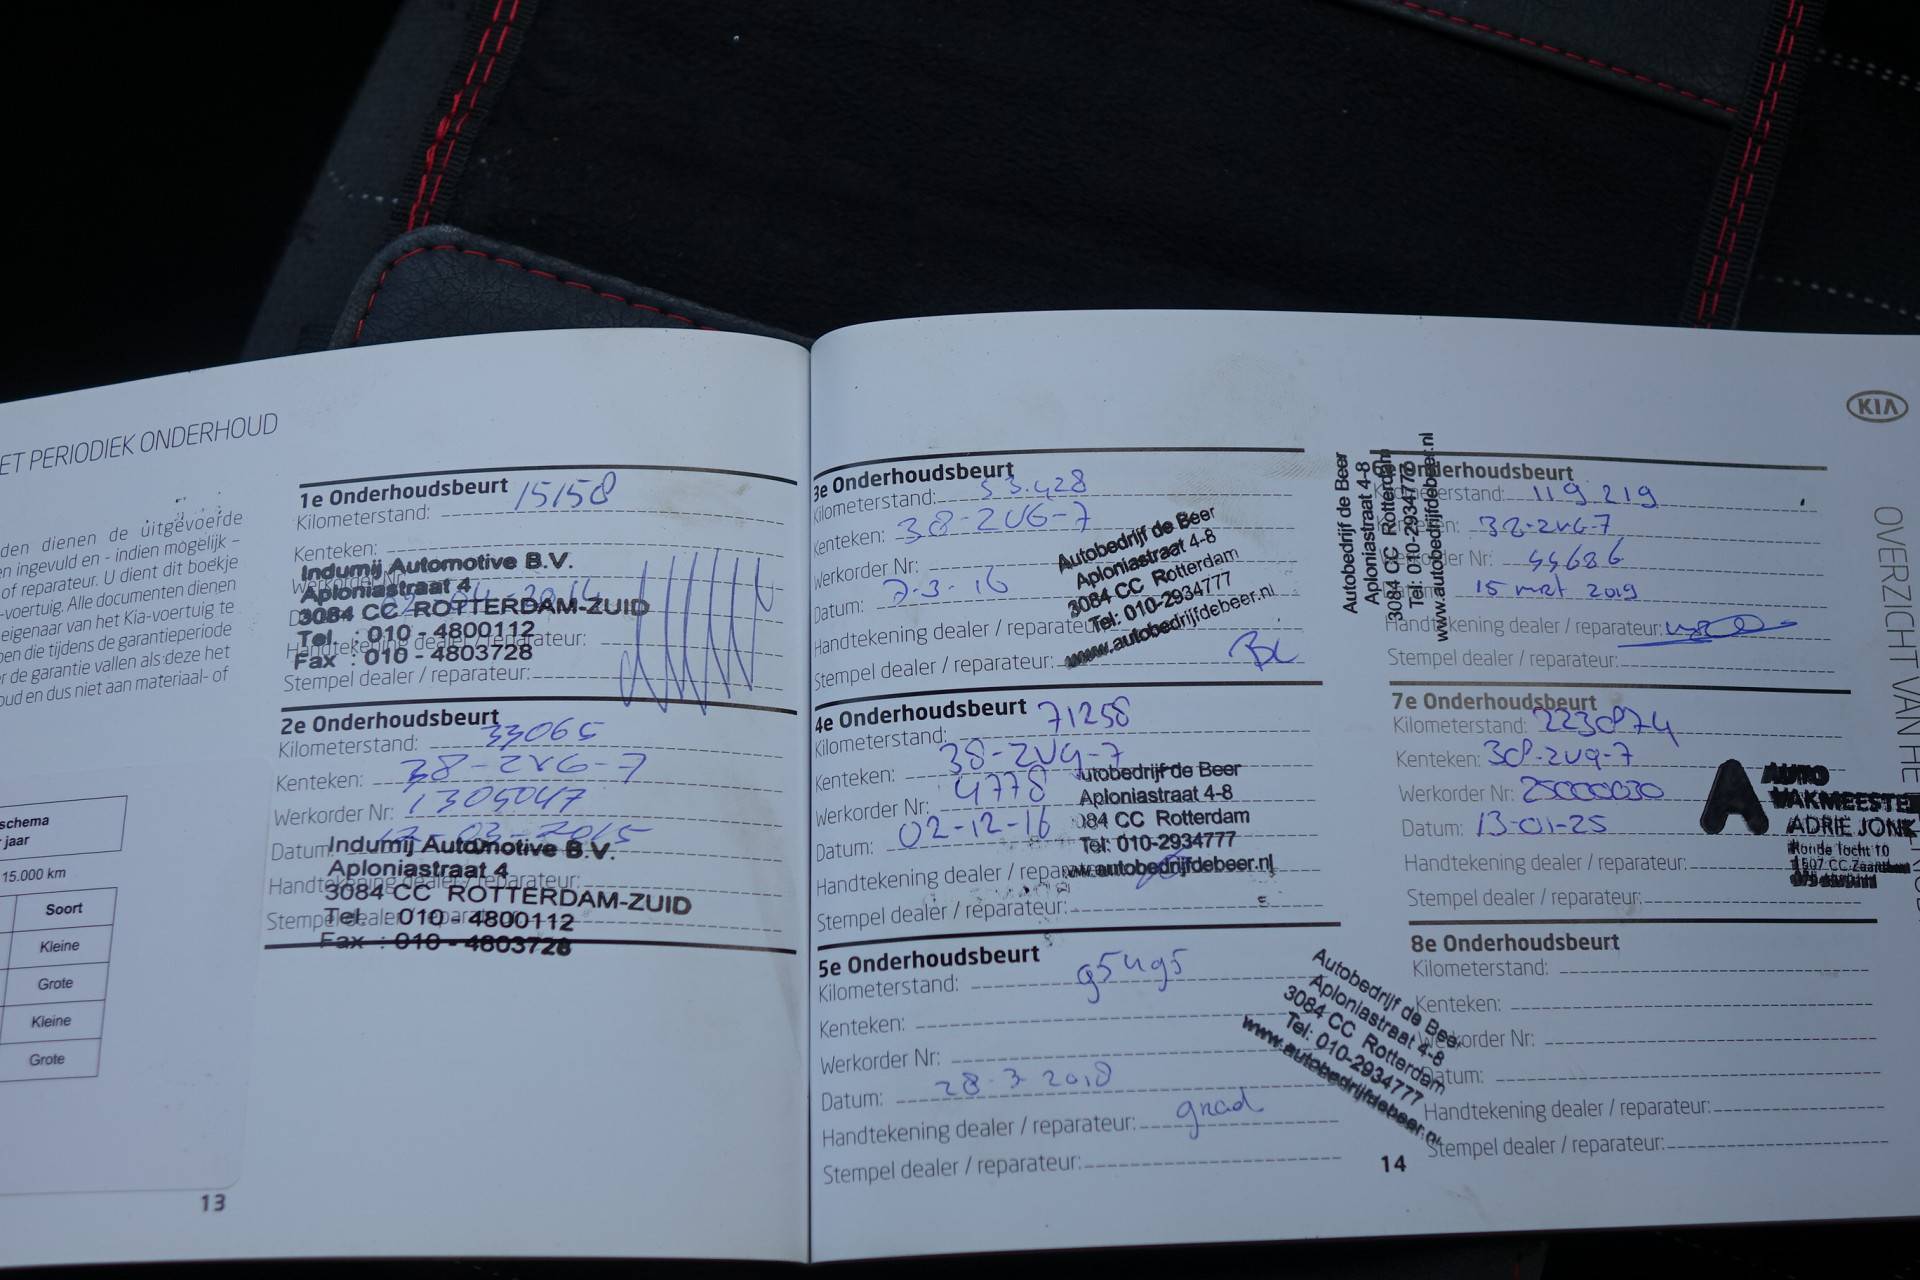 ET PERIODIEK ONDERHOUD
den dienen de uitgevoerde
en ingevuld en - indien mogelijk -
of reparateur. U dient dit boekje
-voertuig. Alle documenten dienen
eigenaar van het Kia-voertuig te
oen die tijdens de garantieperiode
r de garantie vallen als deze het
oud en dus niet aan materiaal- of
schema
jaar
15.000 km
Soort
Kleine
Grote
Kleine
Grote
13
1e Onderhoudsbeurt 15158
Kilometerstand:
Kenteken:
Indumij Automotive B.V.
Aploniastraat 4
3084 CC ROTTERDAM-ZUID
Tel. : 010 - 4800112
Fax : 010 - 4803728
Stempel dealer / reparateur:
2e Onderhoudsbeurt
Kilometerstand: 33065
Kenteken: 38-2VG-7
Werkorder Nr: 1305047
Datum:
Indumij Automotive B.V.
Aploniastraat 4
3084 CC ROTTERDAM-ZUID
Tel. : 010 - 4800112
Fax : 010 - 4803728
3e Onderhoudsbeurt
Kilometerstand: 53.428
Kenteken: 38-2VG-7
Werkorder Nr:
Datum: 7-3-16
Handtekening dealer / reparateur:
Stempel dealer / reparateur:
Autobedrijf de Beer
Aploniastraat 4-8
3084 CC Rotterdam
Tel: 010-2934777
www.autobedrijfdebeer.nl
4e Onderhoudsbeurt 71258
Kilometerstand:
Kenteken: 38-2VG-7
Werkorder Nr: 4778
Datum: 02-12-16
Handtekening dealer / reparateur:
Stempel dealer / reparateur:
utobedrijf de Beer
Aploniastraat 4-8
084 CC Rotterdam
Tel: 010-2934777
www.autobedrijfdebeer.nl
5e Onderhoudsbeurt
Kilometerstand: 95495
Kenteken:
Werkorder Nr:
Datum: 28-3-2018
Handtekening dealer / reparateur:
Stempel dealer / reparateur:
Autobedrijf de Beer
Aploniastraat 4-8
3084 CC Rotterdam
Tel: 010-2934777
www.autobedrijfdebeer.nl
14
KIA
6e Onderhoudsbeurt
Kilometerstand: 119219
Kenteken: 38-2VG-7
Werkorder Nr: 44686
Datum: 15 mrt 2019
Handtekening dealer / reparateur:
Stempel dealer / reparateur:
Autobedrijf de Beer
Aploniastraat 4-8
3084 CC Rotterdam
Tel: 010-2934777
www.autobedrijfdebeer.nl
7e Onderhoudsbeurt
Kilometerstand: 223874
Kenteken: 38-2VG-7
Werkorder Nr: 25000030
Datum: 13-01-25
Handtekening dealer / reparateur:
Stempel dealer / reparateur:
AUTO
VAKMEESTE
ADRIE JONK
8e Onderhoudsbeurt
Kilometerstand:
Kenteken:
Werkorder Nr:
Datum:
Handtekening dealer / reparateur:
Stempel dealer / reparateur:
OVERZICHT VAN HE